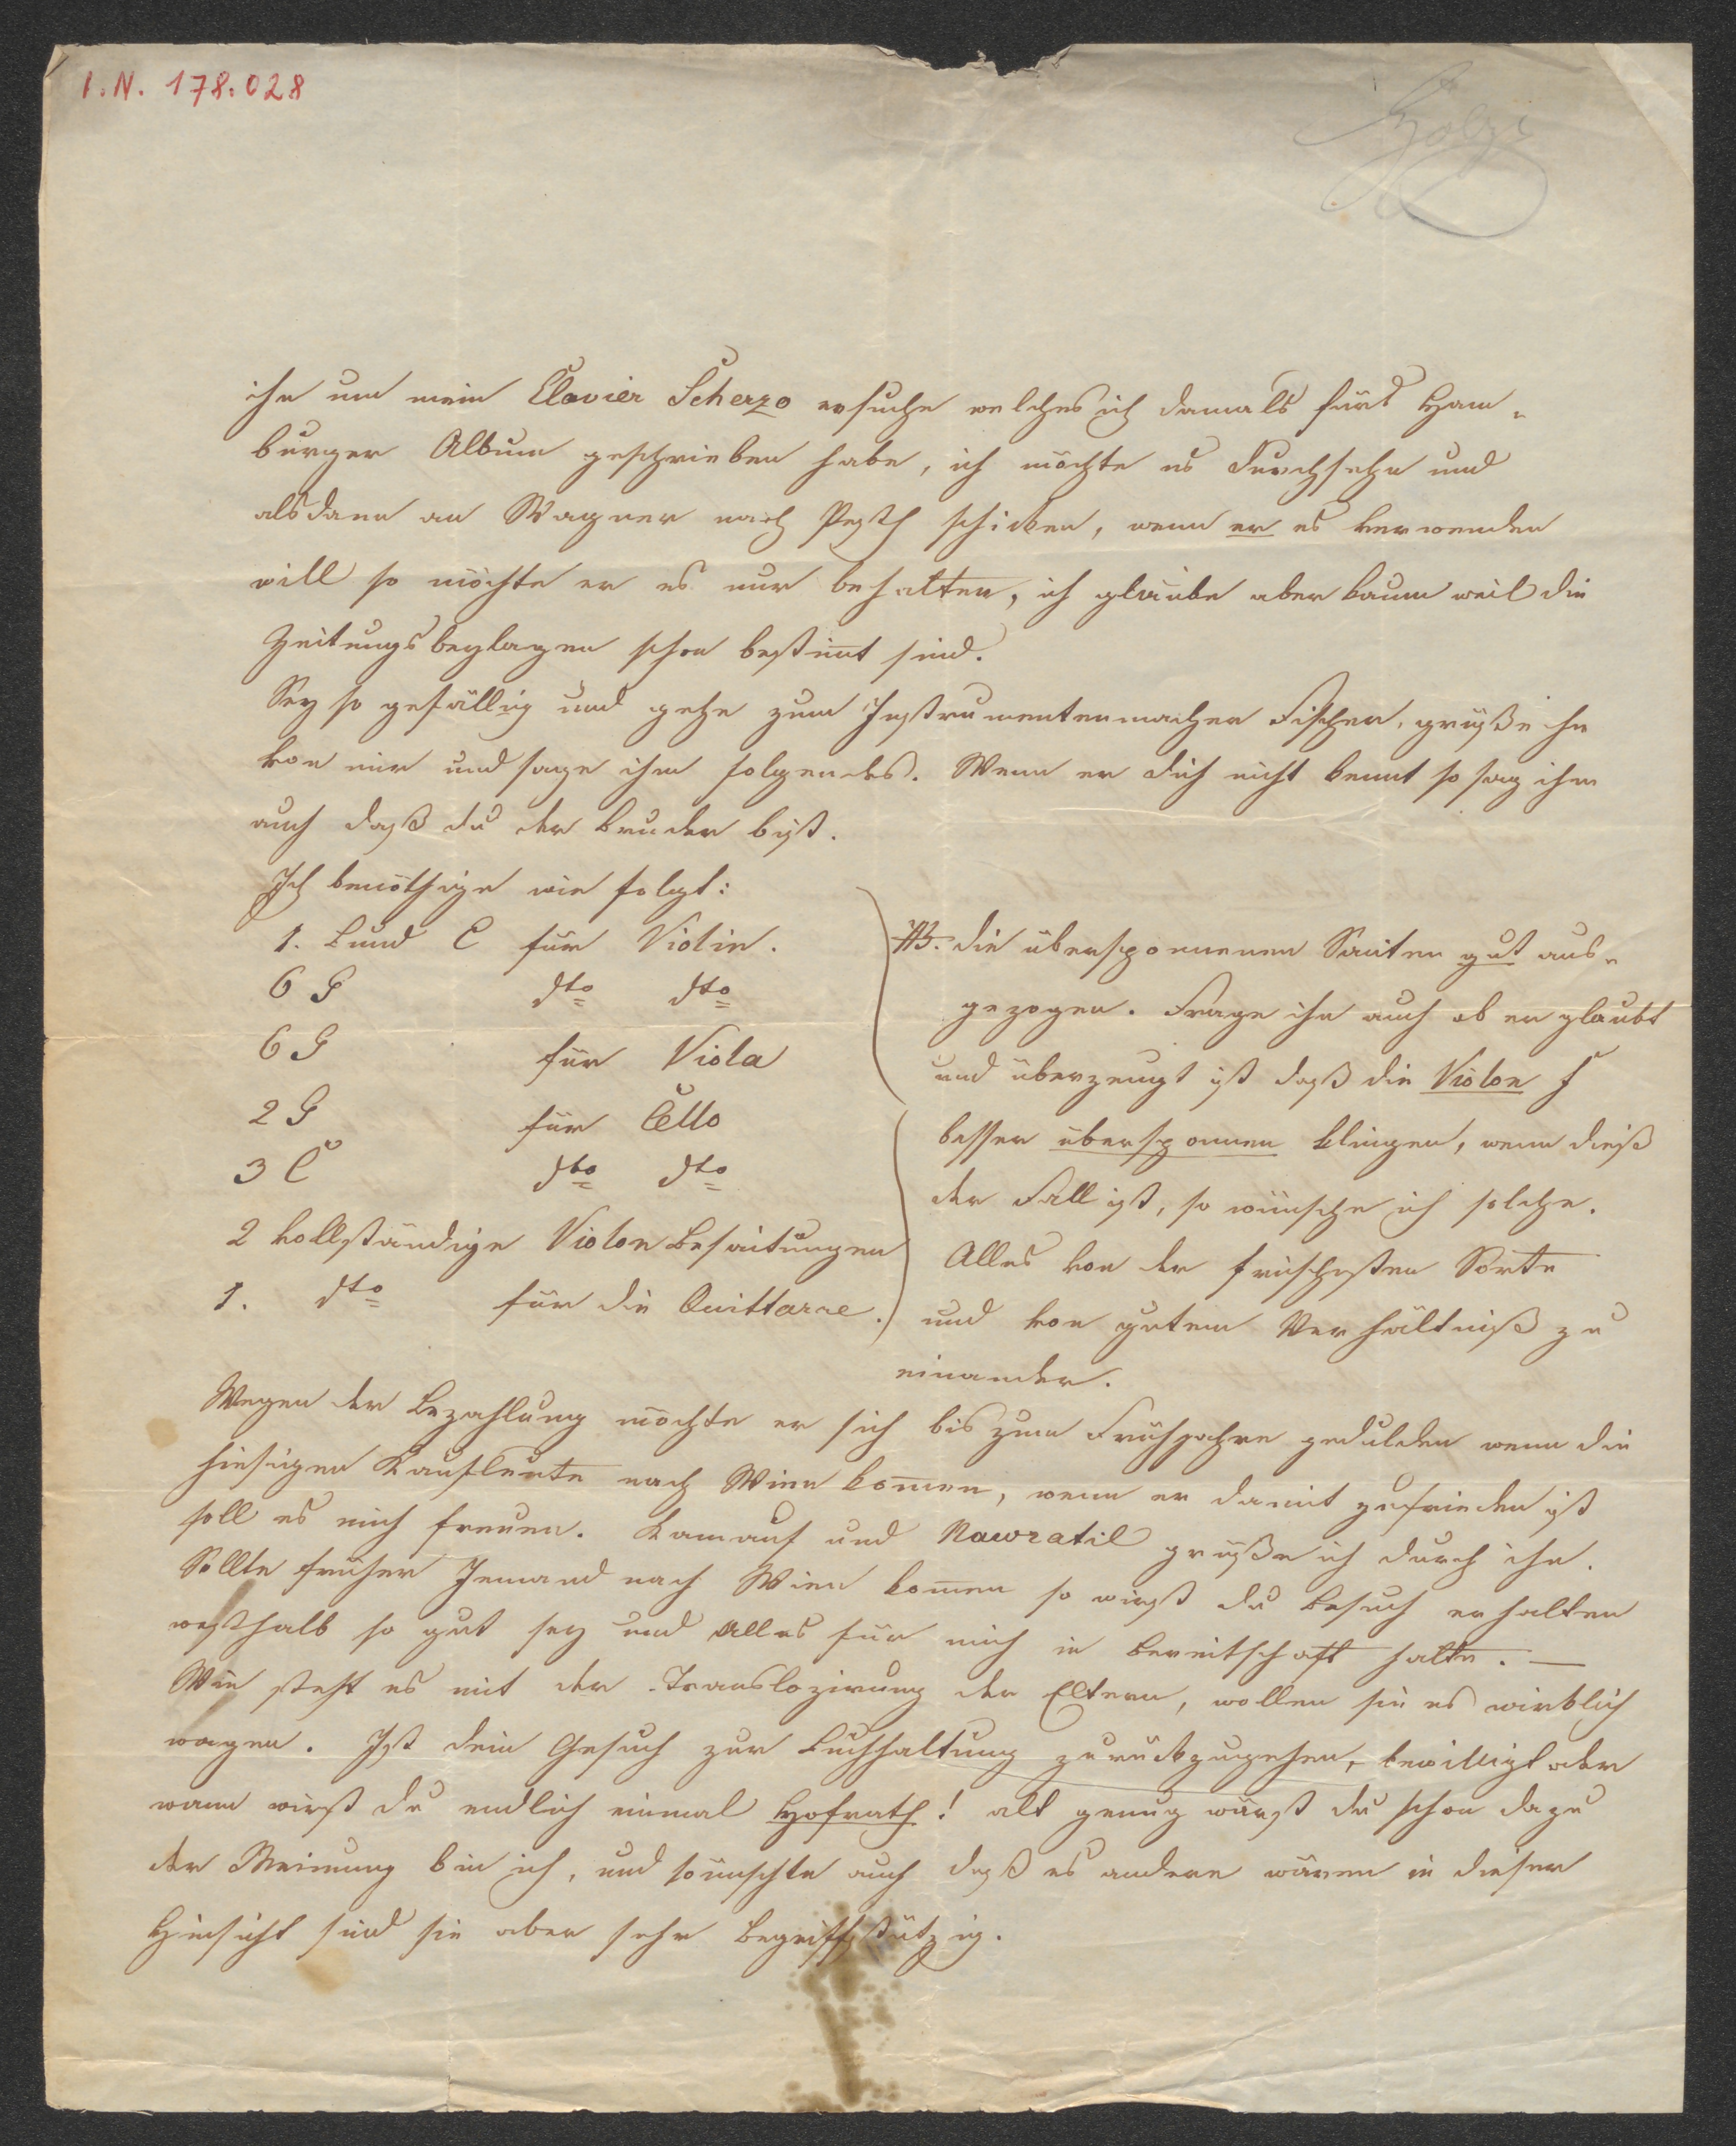 I.N. 178.028
ihn um mein Clavier Scherzo ersuche welches ich damals fürs Ham-
burger Album geschrieben habe, ich möchte es durchsehn und
alsdann an Wagner nach Pesth schicken, wenn er es verwenden
will so möchte er es nur behalten, ich glaube aber kaum weil die
Zeitungsbeylagen schon bestim̅t sind.
Sey so gefällig und gehe zum Instrumentenmacher Fischer, grüße ihn
von mir und sage ihm folgendes. Wenn er dich nicht kennt so sag ihm
auch daß du der Bruder bist.
Ich benöthige wie folgt:
1. Bund E für Violin.
6 G dto dto
6 G für Viola
2 G für Cello
3 C dto dto
2 vollständige Violon Besaitungen
1. dto für die Quittarre.
NB. die übersponnenen Saiten gut aus-
gezogen. Frage ihn auch ob er glaubt
und überzeugt ist daß die Violon
besser übersponnen klingen, wenn dieß
der Fall ist, so wünsche ich solche.
Alles von der frischesten Sorte
und von gutem Verhältniß zu
einander.
Wegen der Bezahlung möchte er sich bis zum Frühjahre gedulden wenn die
hiesigen Kaufleute nach Wien kom̅en, wenn er damit zufrieden ist
soll es mich freuen. Kamauf und Nawratil grüße ich durch ihn.
Sollte früher Jemand nach Wien kom̅en so wirst du Besuch erhalten
weßhalb so gut sey und Alles für mich in Bereitschaft halte. —
Wie steht es mit der Translozirung der Eltern, wollen sie es wirklich
wagen. Ist dein Gesuch zur Buchhaltung zurückzugehen, bewilligt oder
wann wirst du endlich einmal Hofrath! alt genug wärst du schon dazu
der Meinung bin ich, und wünschte auch daß es andere wären in dieser
Hinsicht sind sie aber sehr begriffstützig.